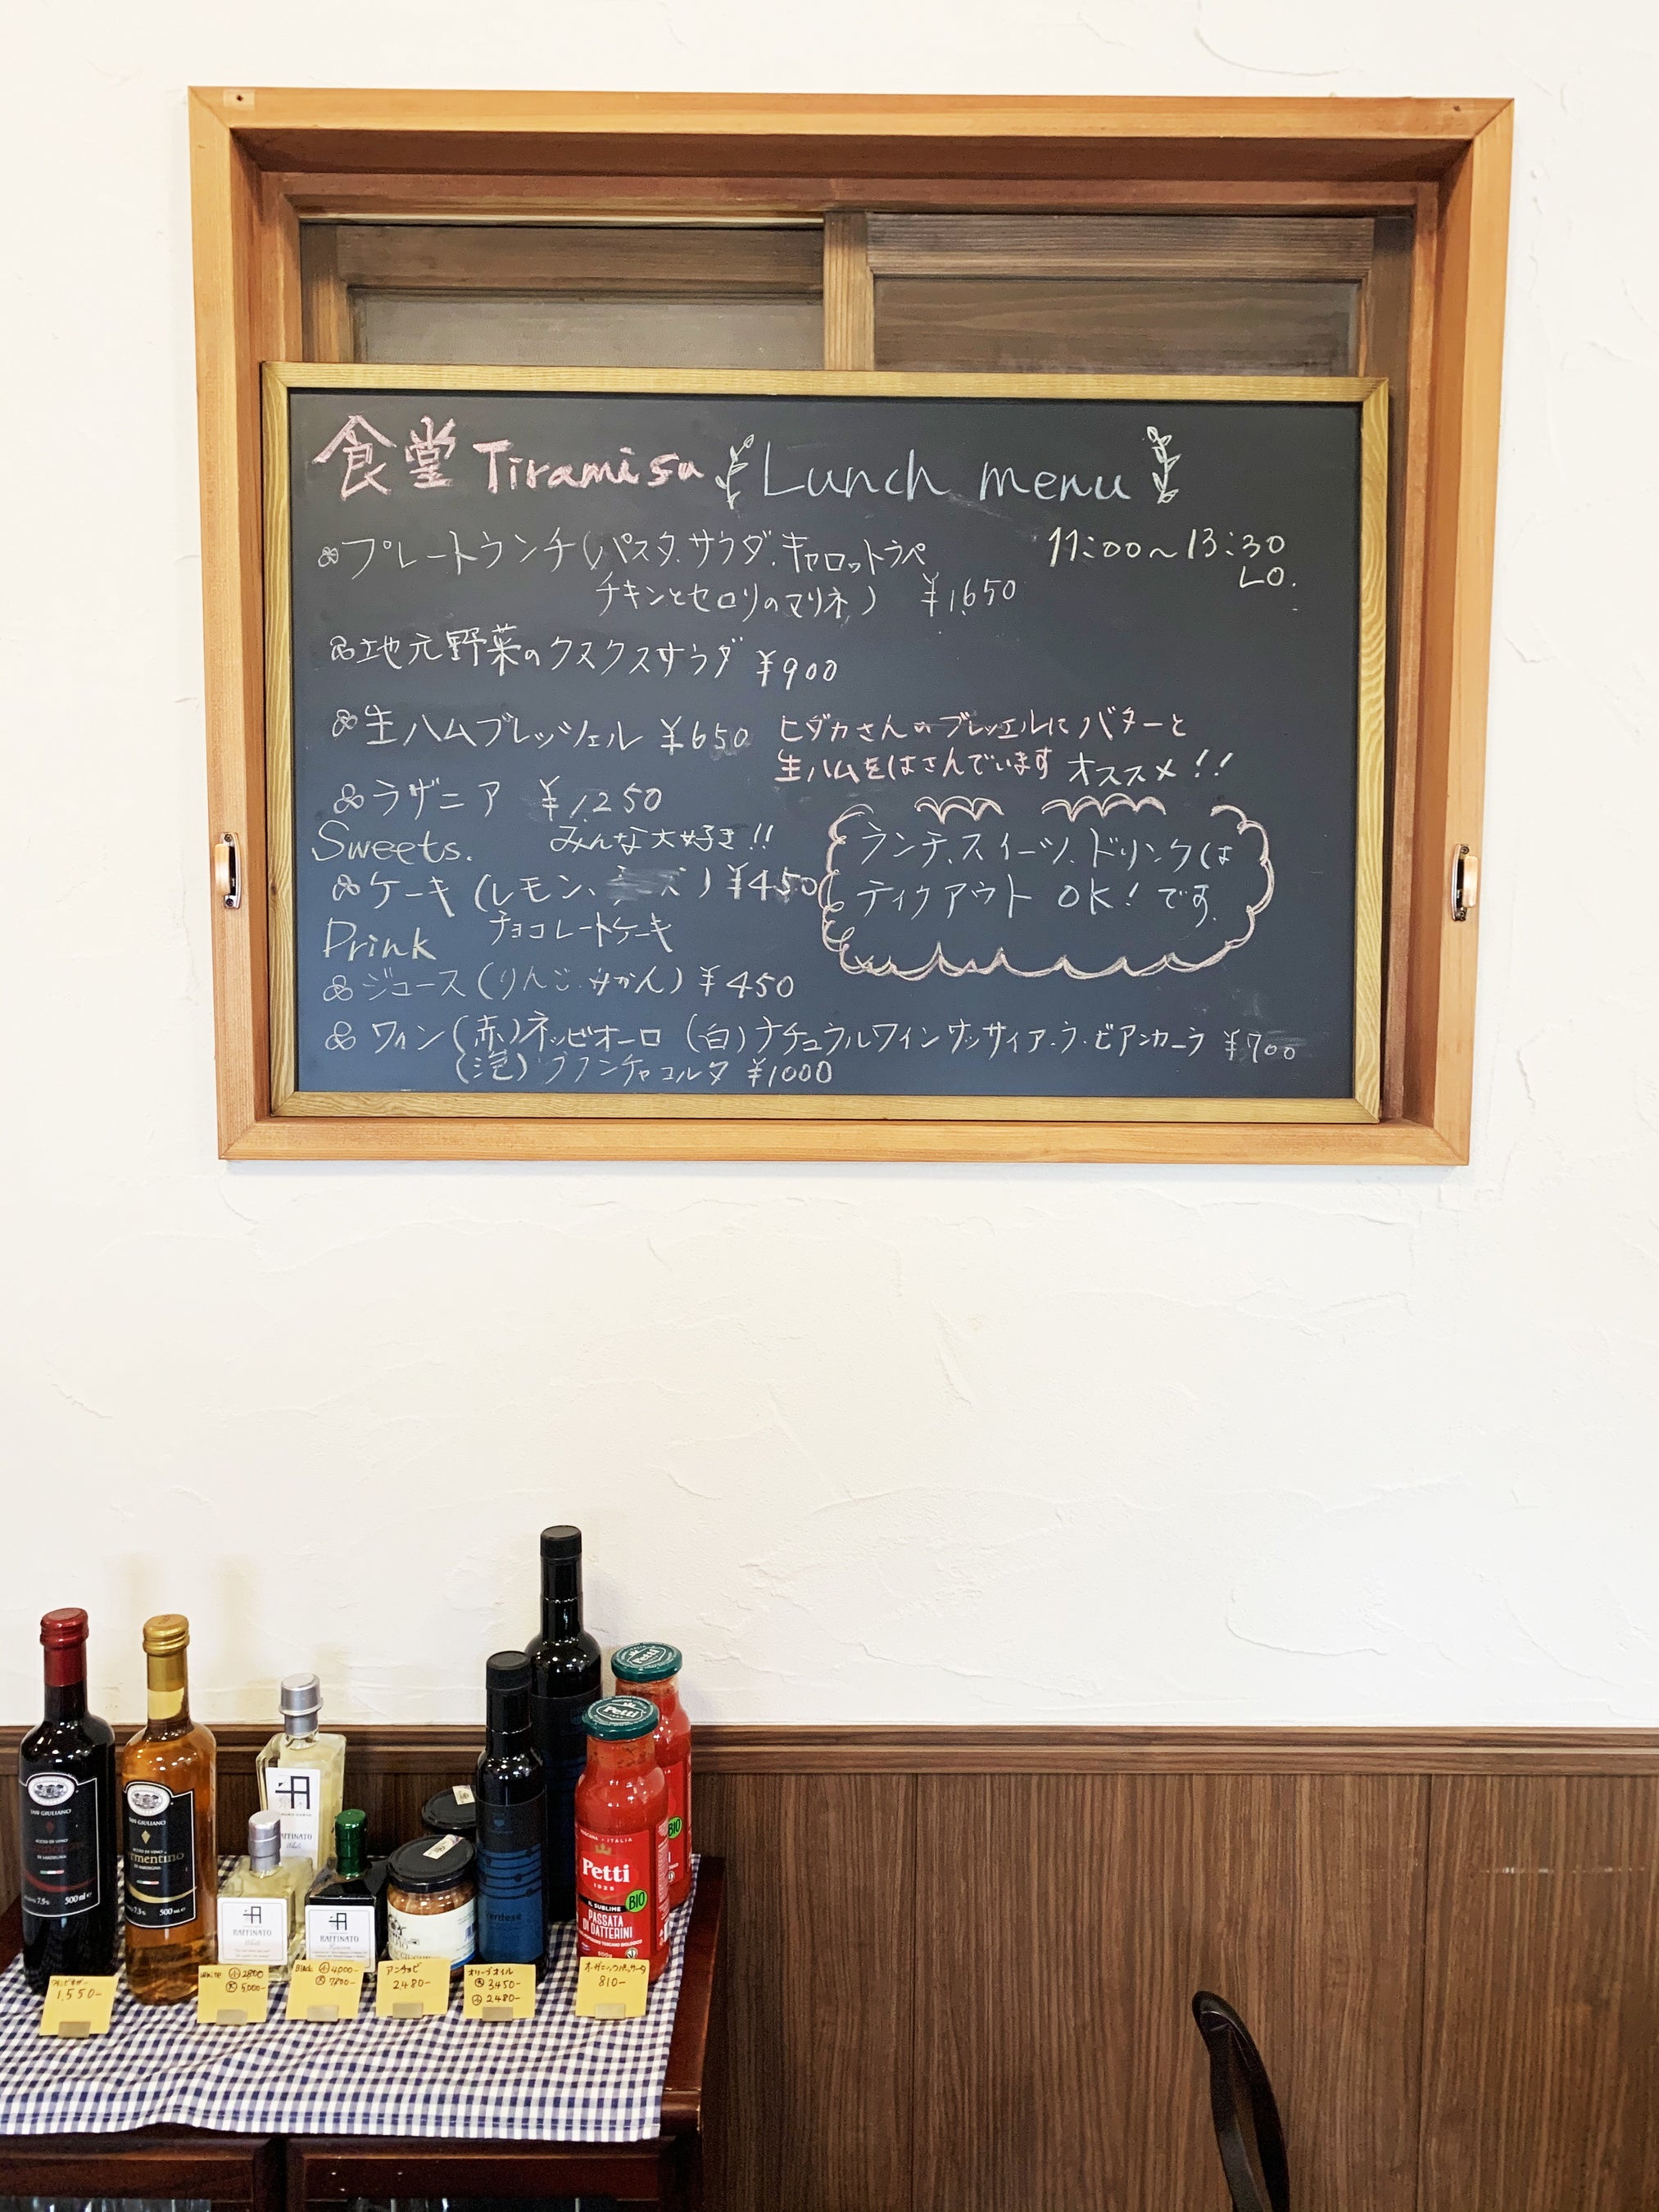 食堂 Tiramisu Lunch menu
プレートランチ(パスタ.サラダ.キャロットラペ
チキンとセロリのマリネ) ¥1,650
11:00~13:30
L.O.
地元野菜のクスクスサラダ ¥900
生ハムブレッツェル ¥650
ヒダカさんのブレッツェルにバターと
生ハムをはさんでいます オススメ!!
ラザニア ¥1,250
みんな大好き!!
Sweets.
ケーキ(レモン、) ¥450
チョコレートケーキ
ランチ、スイーツ、ドリンクは
ティクアウト OK! です.
Drink
ジュース(りんご.みかん) ¥450
ワイン(赤)ネッビオーロ (白)ナチュラルワイン サッサイア.ラ.ビアンカーラ ¥700
(泡)フランチャコルタ ¥1000
SAN GIULIANO
ACETO DI VINO
DI SARDEGNA
500 ml e
SAN GIULIANO
ACETO DI VINO
DI SARDEGNA
500 ml e
RAFFINATO
White
RAFFINATO
Petti
Petti
TOSCANA · ITALIA
Petti
BIO
IL SUBLIME
PASSATA
DI DATTERINI
BIO
1,550-
White 小 2800
大 5,000-
Black 小 4,000-
大 7800-
アンチョビ
2,480-
オリーブオイル
大 3450-
小 2,480-
810-